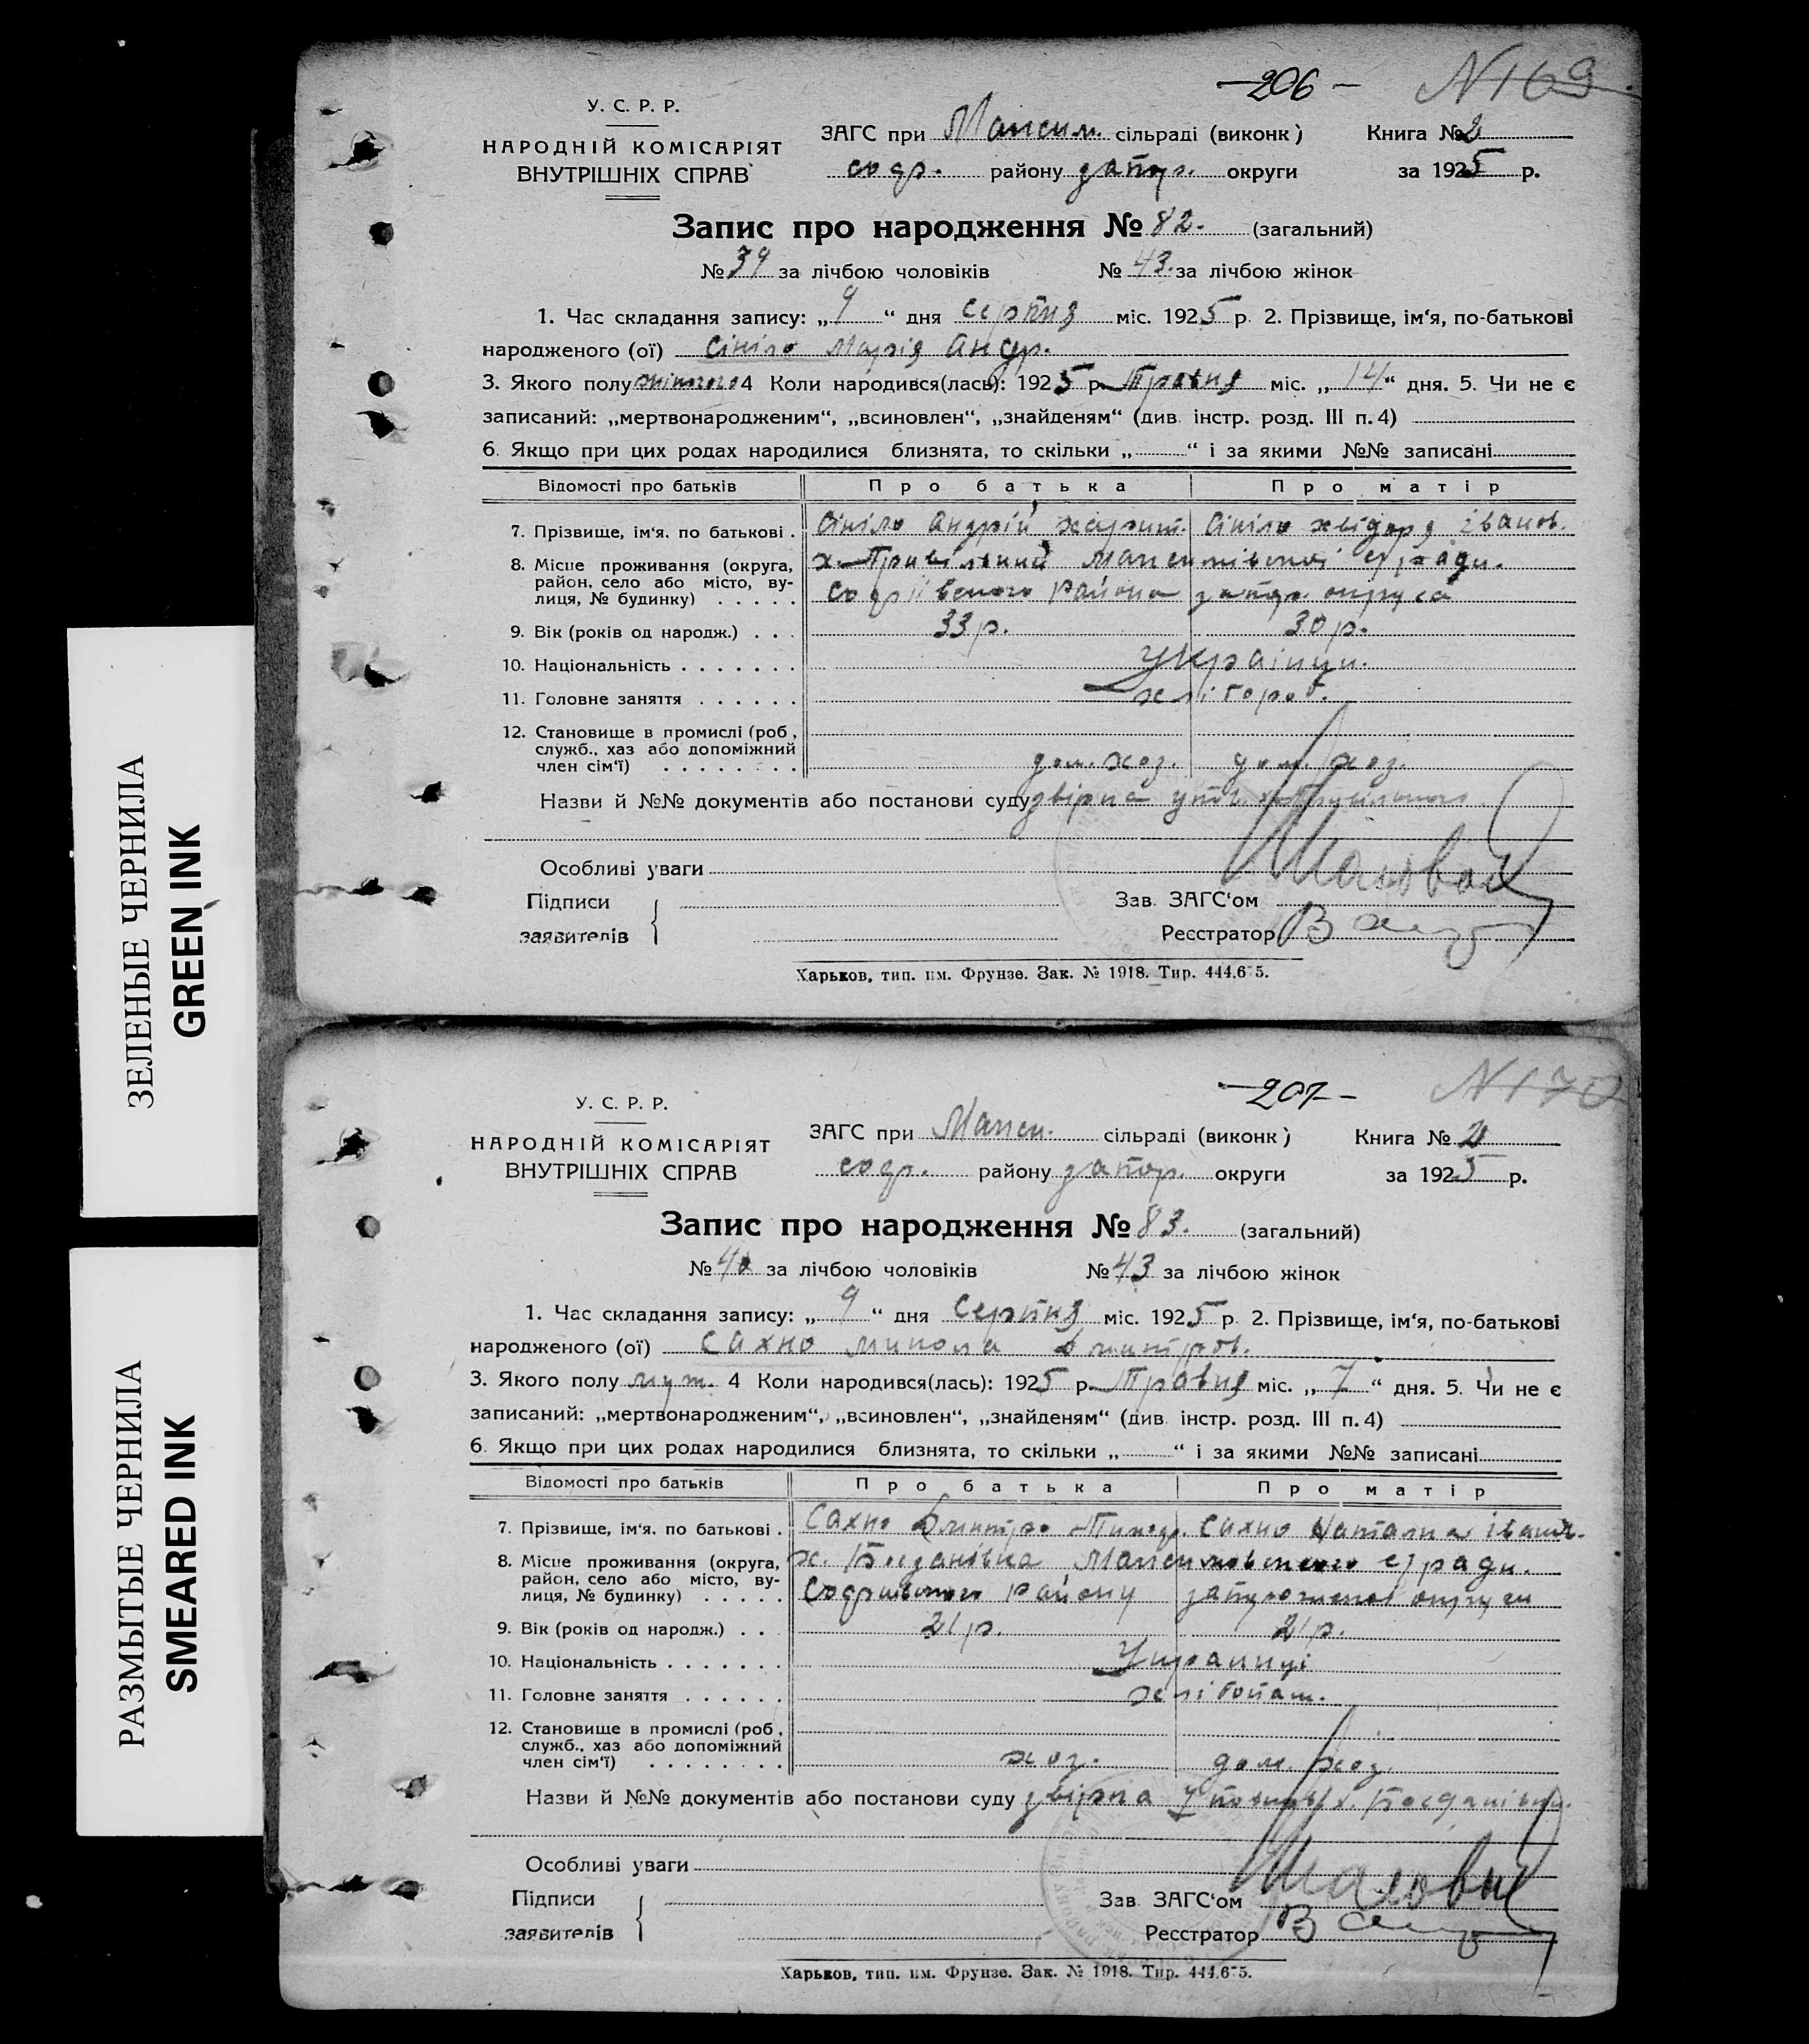 -206- N169
У. С. Р. Р.
НАРОДНІЙ КОМІСАРІЯТ
ВНУТРІШНІХ СПРАВ
ЗАГС при Максим. сільраді (виконк) Книга № 2
софі. району запор. округи за 1925 р.
Запис про народження № 82. (загальний)
№ 39 за лічбою чоловіків № 43. за лічбою жінок
1. Час складання запису: „9“ дня серпня міс. 1925 р 2. Прізвище, ім'я, по-батькові
народженого (ої) Сініло Марія Андр.
3. Якого полу жіночого 4 Коли народився(лась): 1925 р. Травня міс. „14“ дня. 5. Чи не є
записаний: „мертвонародженим“, „всиновлен“, „знайденям“ (див. інстр. розд. III п. 4)
6. Якщо при цих родах народилися близнята, то скільки „ “ і за якими №№ записані
Відомості про батьків Про батька Про матір
7. Прізвище, ім'я. по батькові . Сініло Андрій Харит. Сініло Івanов.
8. Місце проживання (округа, х. Привільний Максимівської с/ради.
район, село або місто, ву-
лиця, № будинку) . . . . . района запор. округа
9. Вік (років од народж.) . . . 33 р. 30 р.
10. Національність . . . . . . . Українци.
11. Головне заняття . . . . . . хлібороб.
12. Становище в промислі (роб,
служб., хаз або допоміжний
член сім'ї) . . . . . . . . дом. хоз. дом. хоз.
Назви й №№ документів або постанови суду звірка
Особливі уваги
Підписи Зав. ЗАГС'ом
заявителів Реєстратор
Харьков, тип. им. Фрунзе. Зак. № 1918. Тир. 444.675.
-207- N170
У. С. Р. Р.
НАРОДНІЙ КОМІСАРІЯТ
ВНУТРІШНІХ СПРАВ
ЗАГС при Макси. сільраді (виконк) Книга № 2
софі. району запор. округи за 1925 р.
Запис про народження № 83. (загальний)
№ 40 за лічбою чоловіків № 43 за лічбою жінок
1. Час складання запису: „9“ дня Серпня міс. 1925 р 2. Прізвище, ім'я, по-батькові
народженого (ої) Сахно Микола Дмитров.
3. Якого полу муж. 4 Коли народився(лась): 1925 р. Травня міс. „7“ дня. 5. Чи не є
записаний: „мертвонародженим“, „всиновлен“, „знайденям“ (див. інстр. розд. III п. 4)
6. Якщо при цих родах народилися близнята, то скільки „ “ і за якими №№ записані
Відомості про батьків Про батька Про матір
7. Прізвище, ім'я. по батькові . Сахно Дмитро Сахно Наталка Іванів.
8. Місце проживання (округа, х. Богданівка Максимовского с/ради.
район, село або місто, ву-
лиця, № будинку) . . . . . району запорожской округи
9. Вік (років од народж.) . . 21 р. 21 р.
10. Національність . . . . . . . Украинці
11. Головне заняття . . . . . . хлібопаш.
12. Становище в промислі (роб,
служб., хаз або допоміжний
член сім'ї) . . . . . . . . хоз. дом. хоз.
Назви й №№ документів або постанови суду звірка х. Богданівки.
Особливі уваги
Підписи Зав. ЗАГС'ом
заявителів Реєстратор
Харьков, тип. им. Фрунзе. Зак. № 1918. Тир. 444.675.
ЗЕЛЕНЫЕ ЧЕРНИЛА
GREEN INK
РАЗМЫТЫЕ ЧЕРНИЛА
SMEARED INK